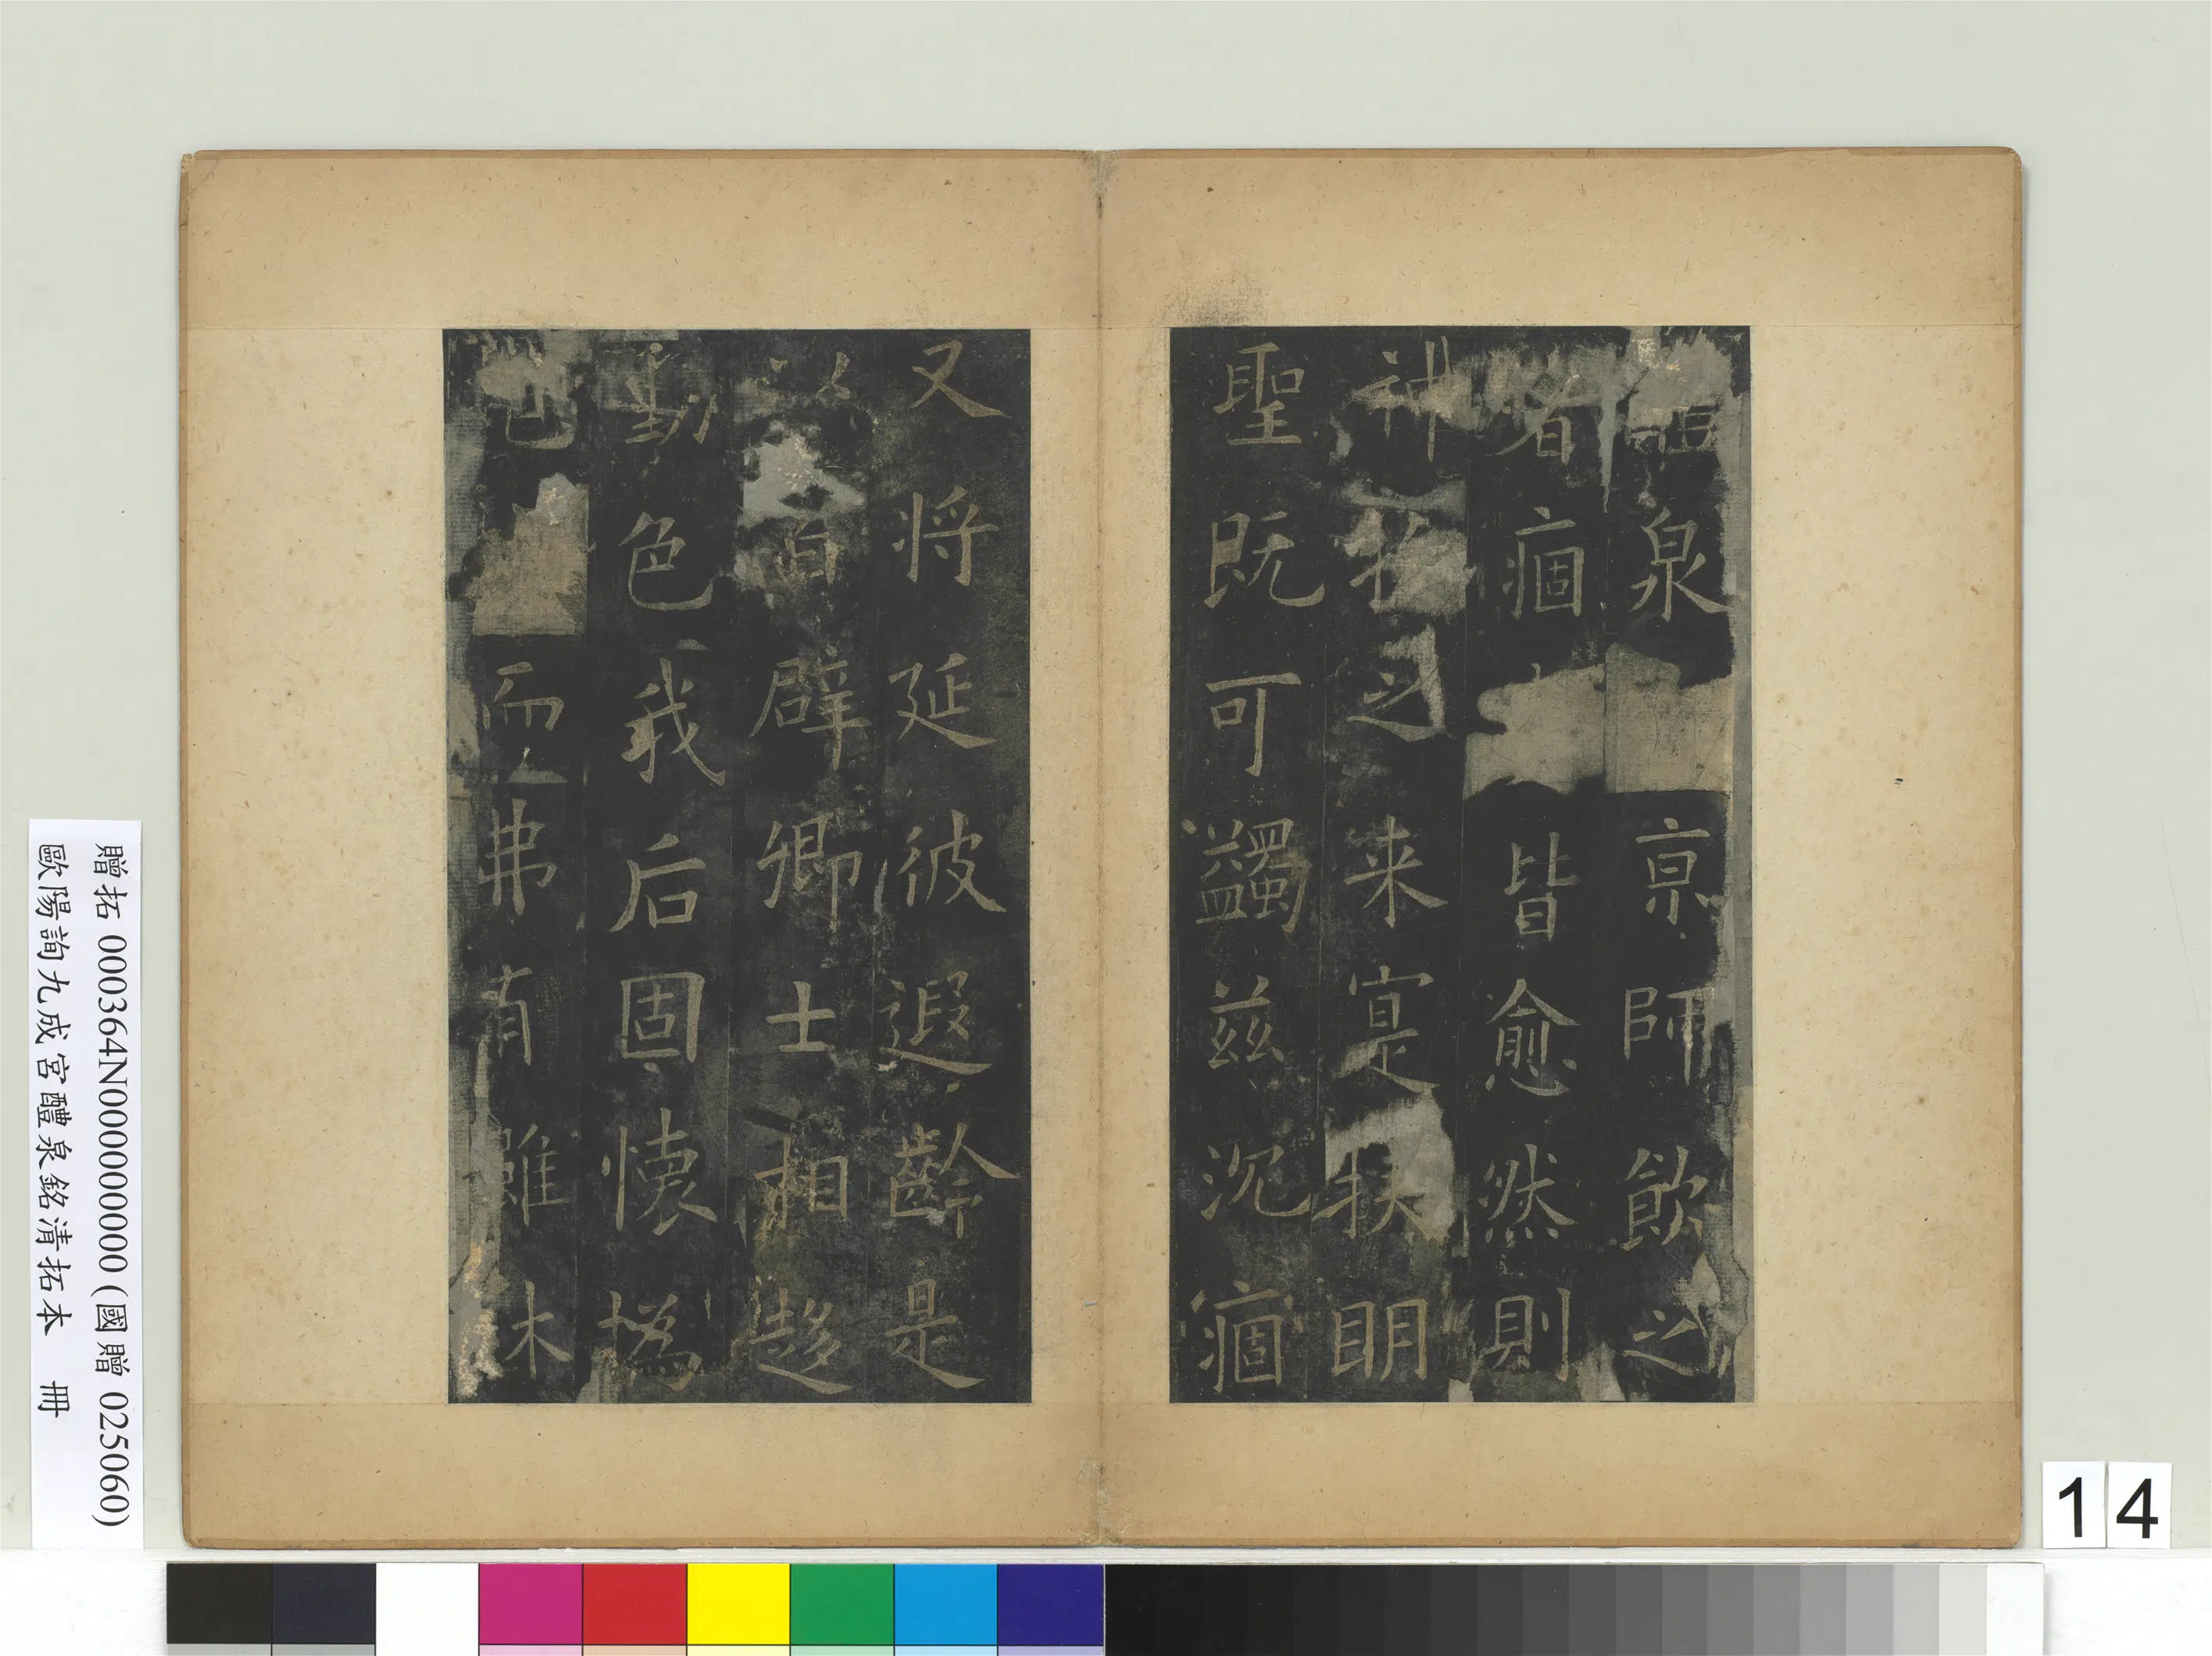 泉京師飲之
者痼皆愈然則
神物之来寔扶明
聖既可蠲兹沉痼
又将延彼遐齡是
以百辟卿士相趍
動色我后固懷撝
而弗有雖休
贈拓 000364N000000000 (國贈 025060)
歐陽詢九成宮醴泉銘清拓本 冊
14